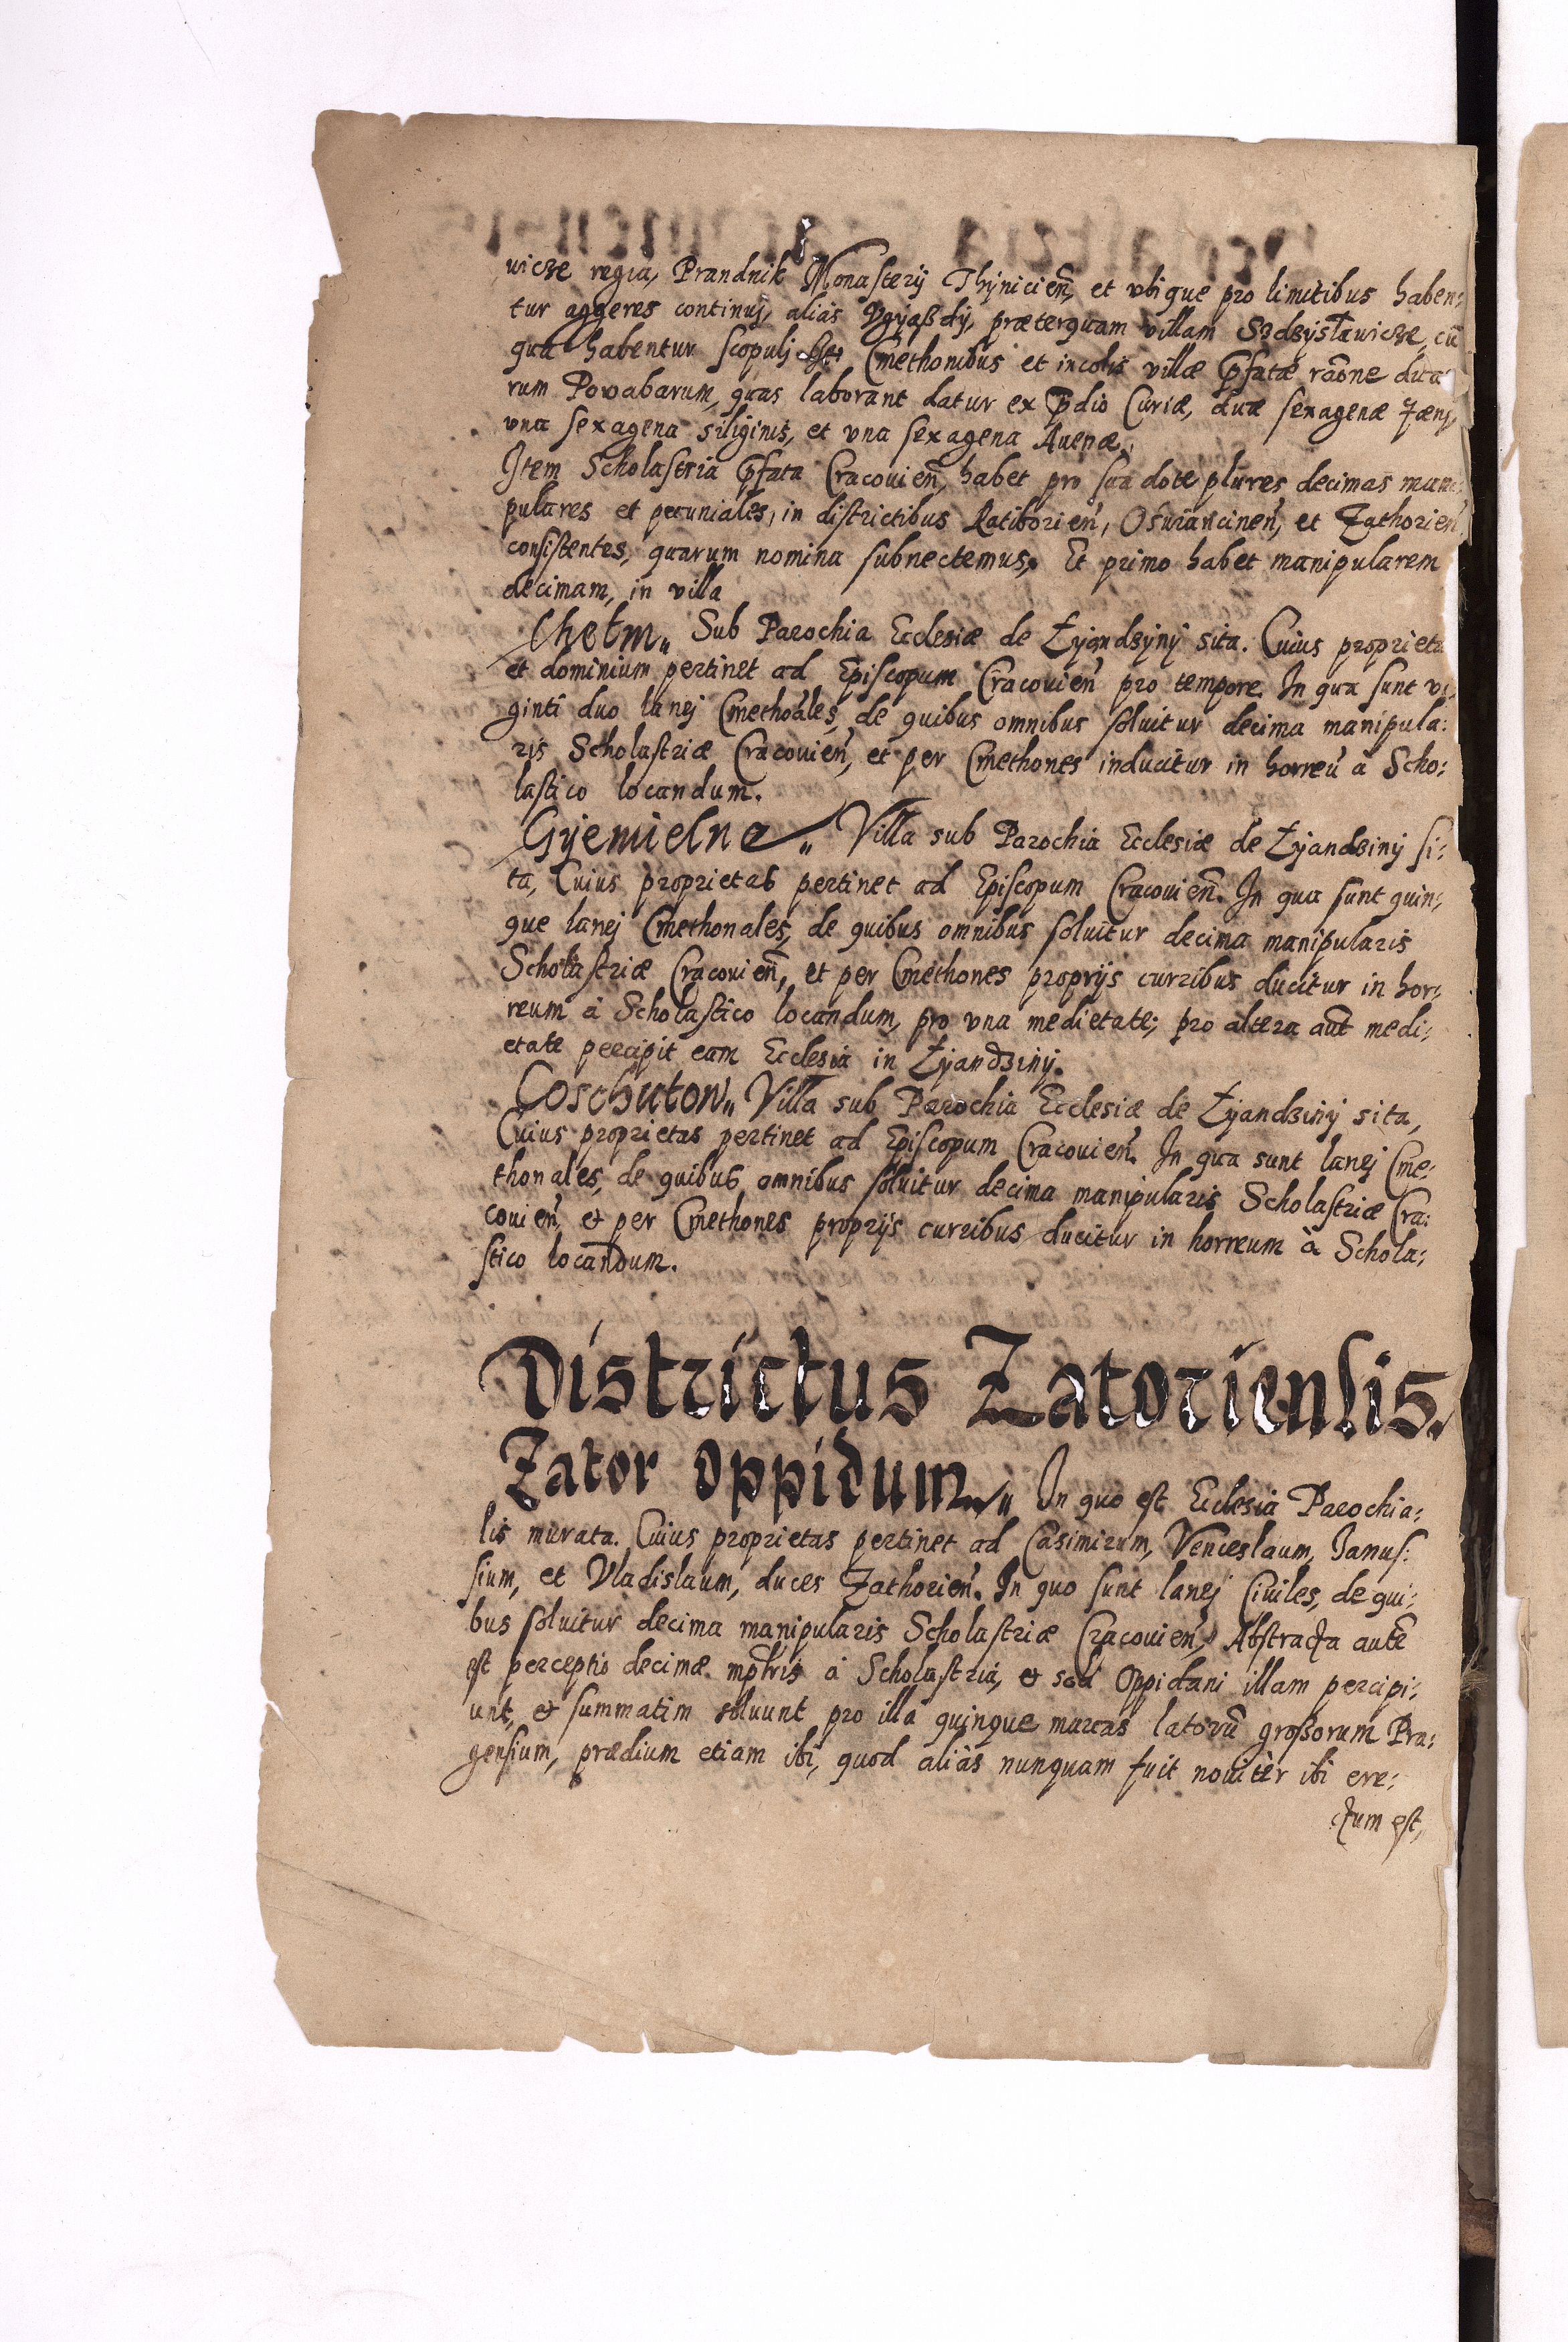 uicze regia, Prandnik Monasterij Thyniciẽn, et vbique pro limitibus haben:
tur aggeres continuj, aliàs Vgyaßdy, præterquam villam Sdzysłauicze, cũ
qua habentur scopulj. Cmethonibus et incolis villæ pfatæ rãone dicta
rum Powabarum, quas laborant datur ex pdio Curiæ, duæ sexagenæ fænj,
vna sexagena siliginis, et vna sexagena Auenæ,
Item Scholastria pfata Cracouien̄, habet pro sua dote plures decimas mani:
pulares et pecuniales, in districtibus Ratiborien̄, Osuiancinen̄, et Zathorien̄
consistentes, quarum nomina subnectemus, Et primo habet manipularem
decimam, in villa
Chełm„ Sub Parochia Ecclesiæ de Łyandzyny sita. Cuius proprieta
et dominium pertinet ad Episcopum Cracouien̄ pro tempore. In qua sunt vi
ginti duo lanej Cmethoãles, de quibus omnibus soluitur decima manipula:
ris Scholastriæ Cracouien̄, et per Cmethones inducitur in horreũ à Scho:
lastico locandum.
Gyemielne„ Villa sub Parochia Ecclesiæ de Łyandziny si:
ta, Cuius proprietas pertinet ad Episcopum Cracouien̄. In qua sunt quin:
que lanej Cmethonales, de quibus omnibus soluitur decima manipularis
Scholastriæ Cracouien̄, et per Cmethones proprijs curribus ducitur in hor:
reum à Scholastico locandum, pro vna medietate; pro altera aũt medi:
etate percipit eam Ecclesia in Łyandziny.
Coschutow„ Villa sub Parochia Ecclesiæ de Łyandziny sita,
Cuius proprietas pertinet ad Episcopum Cracouien̄. In qua sunt lanej Cme:
thonales, de quibus omnibus soluitur decima manipularis Scholastriæ Cra:
couien̄, et per Cmethones proprijs curribus ducitur in horreum à Schola:
stico locandum.
Districtus Zatoriensis.
Zator Oppidum„ In quo est Ecclesia Parochia:
lis murata. Cuius proprietas pertinet ad Casimirum, Venceslaum, Janus:
sium, et Vladislaum, duces Zathorien̄. In quo sunt lanej Ciuiles, de qui:
bus soluitur decima manipularis Scholastriæ Cracouien̄, Abstracta autẽ
est perceptio decimæ mplris à Scholastria, et sed Oppidani illam percipi:
unt, et summatim soluunt pro illa quinque marcas latorũ großorum Pra:
gensium, prædium etiam ibi, quod aliàs nunquam fuit nouitèr ibi ere:
ctum est,